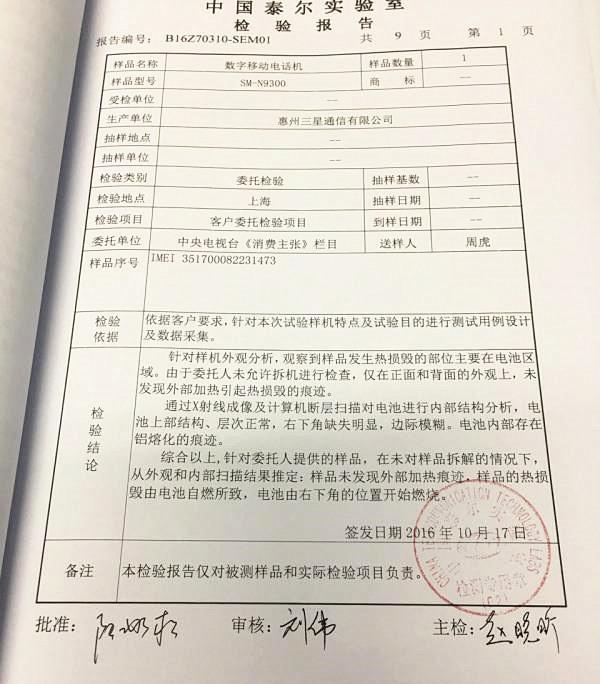 中国泰尔实验室
检验报告
报告编号： B16Z70310-SEM01 共 9 页 第 1 页
样品名称 数字移动电话机 样品数量 1
样品型号 SM-N9300 商标 --
受检单位 --
生产单位 惠州三星通信有限公司
抽样地点 --
抽样单位 --
检验类别 委托检验 抽样基数 --
检验地点 上海 抽样日期 --
检验项目 客户委托检验项目 到样日期 --
委托单位 中央电视台《消费主张》栏目 送样人 周虎
样品序号 IMEI 351700082231473
检验依据 依据客户要求，针对本次试验样机特点及试验目的进行测试用例设计
及数据采集。
检验结论
针对样机外观分析，观察到样品发生热损毁的部位主要在电池区
域。由于委托人未允许拆机进行检查，仅在正面和背面的外观上，未
发现外部加热引起热损毁的痕迹。
通过X射线成像及计算机断层扫描对电池进行内部结构分析，电
池上部结构、层次正常，右下角缺失明显，边际模糊。电池内部存在
铝熔化的痕迹。
综合以上，针对委托人提供的样品，在未对样品拆解的情况下，
从外观和内部扫描结果推定：样品未发现外部加热痕迹，样品的热损
毁由电池自燃所致，电池由右下角的位置开始燃烧。
签发日期 2016 年 10 月 17 日
备注 本检验报告仅对被测样品和实际检验项目负责。
CHINA TELECOMMUNICATION TECHNOLOGY LABS
检测专用章
(S2)
批准： 审核：刘伟 主检：赵晓昕